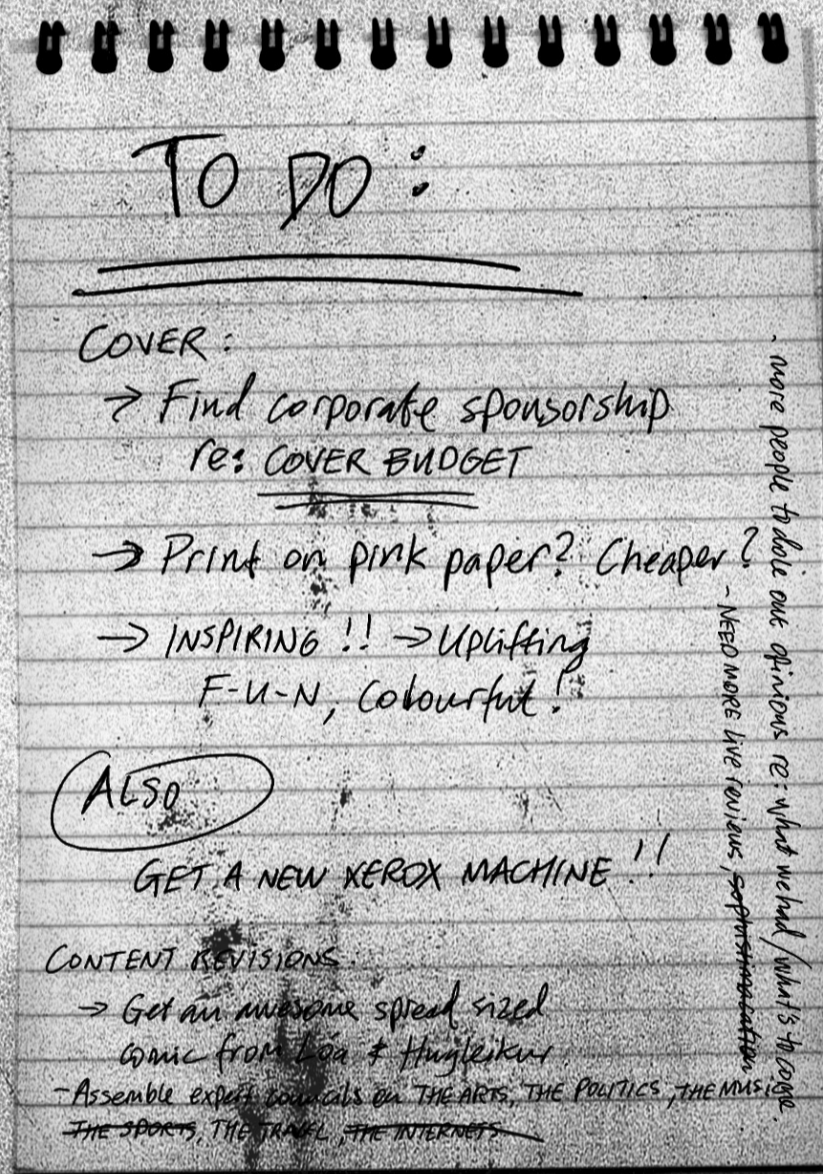 TO DO :
COVER :
→ Find corporate sponsorship
re: COVER BUDGET
→ Print on pink paper? Cheaper?
→ INSPIRING !! → Uplifting
F-U-N, Colourful!
ALSO
GET A NEW XEROX MACHINE !!
CONTENT REVISIONS
→ Get an awesome spread sized
comic from Lóa & Hugleikur
- Assemble expert councils on THE ARTS, THE POLITICS, THE MUSIC
THE SPORTS, THE TRAVEL, THE INTERNETS
- NEED MORE live reviews,
- more people to dole out opinions re: what we had/what's to come.